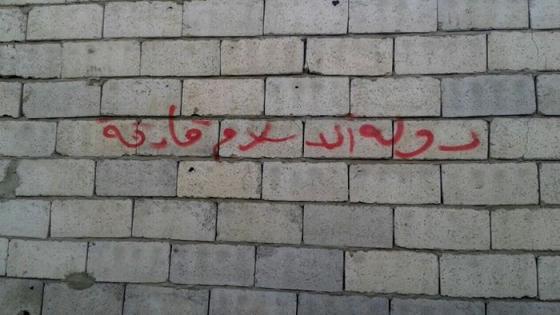 دولة الاسلام قادمة